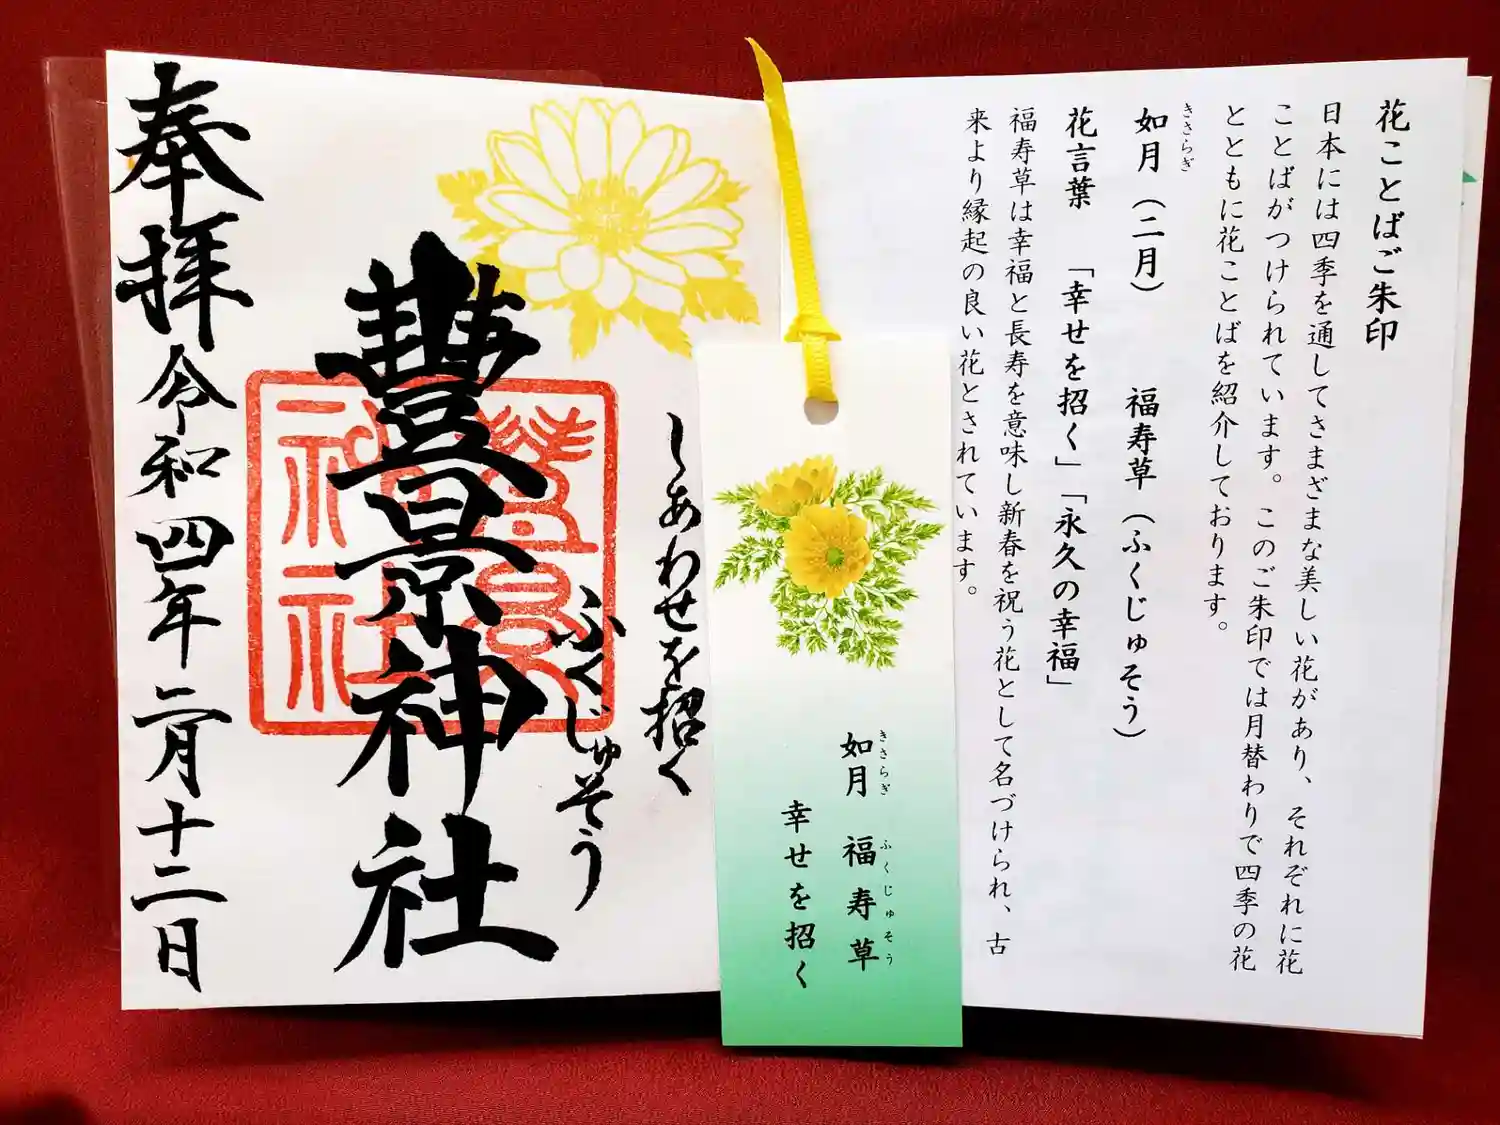 花ことばご朱印
日本には四季を通してさまざまな美しい花があり、それぞれに花
ことばがつけられています。このご朱印では月替わりで四季の花
とともに花ことばを紹介しております。
きさらぎ
如月（二月） 福寿草（ふくじゅそう）
花言葉 「幸せを招く」「永久の幸福」
福寿草は幸福と長寿を意味し新春を祝う花として名づけられ、古
来より縁起の良い花とされています。
きさらぎ ふくじゅそう
如月 福寿草
幸せを招く
しあわせを招く
ふくじゅそう
豐景神社
奉拝 令和四年二月十二日